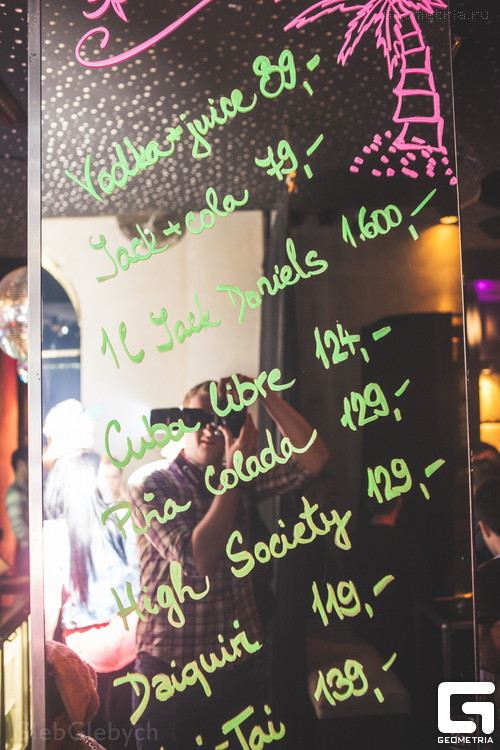 metria.ru
Vodka+juice 89,-
Jack+cola 79,-
1l Jack Daniels 1.600,-
Cuba libre 124,-
Pina Colada 129,-
High Society 129,-
Daiquiri 119,-
-Tai 139,-
GlebGlebych
G
GEOMETRIA